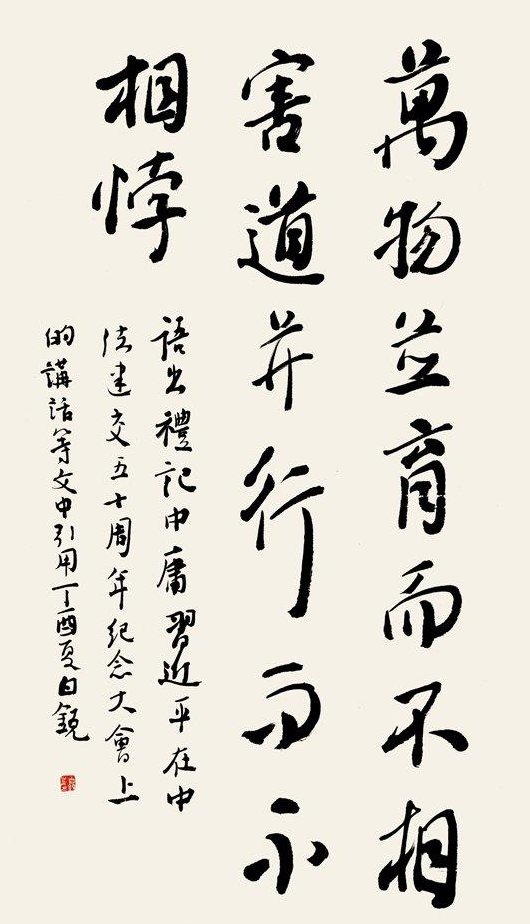 萬物並育而不相
害道并行而不
相悖
語出禮記中庸習近平在中
法建交五十周年紀念大會上
的講話等文中引用丁酉夏白鏡